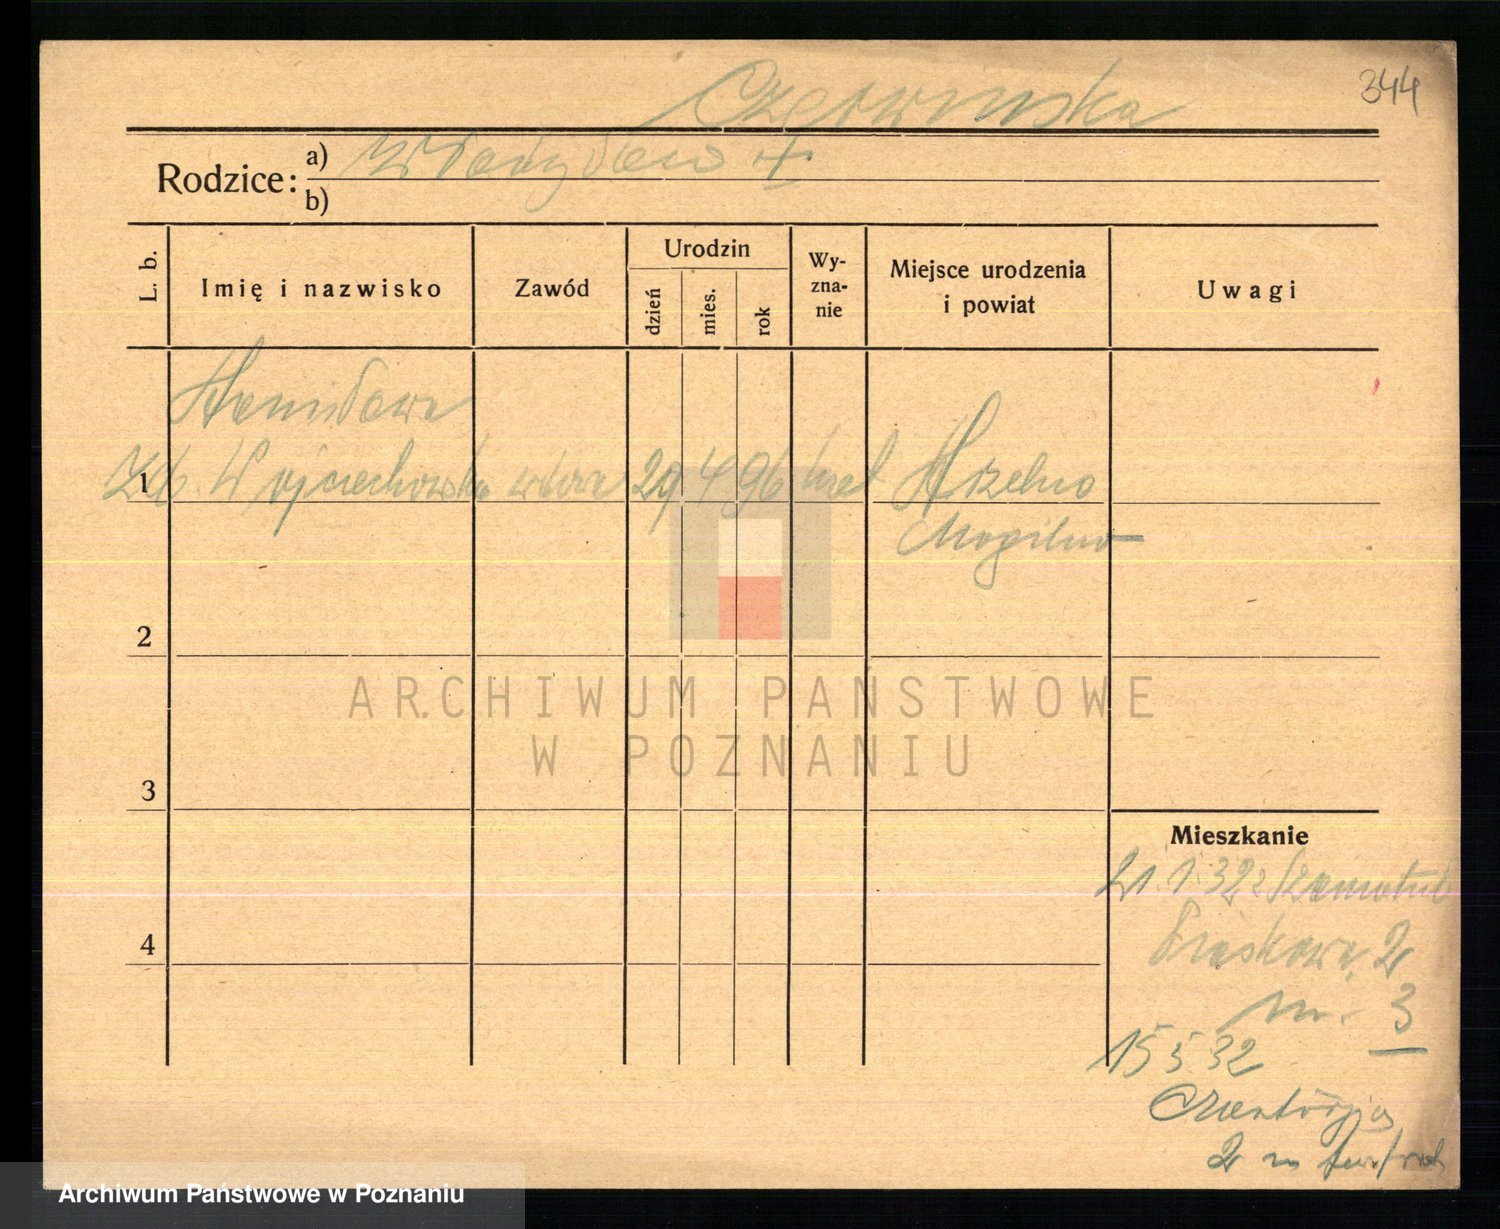 344
Czerwinska
Rodzice:
a) Władysław +
b)
L. b.
Imię i nazwisko
Zawód
Urodzin
dzień
mies.
rok
Wy-
zna-
nie
Miejsce urodzenia
i powiat
Uwagi
Stanisława
1 Wojciechowska wdowa 29 4 96 kat Strzelno
Mogilno
2
3
4
Mieszkanie
21.1.32 z Szamotuł
Piaskowa 2
m. 3
15 5 32
Czartorja
2 m
ARCHIWUM PAŃSTWOWE
W POZNANIU
Archiwum Państwowe w Poznaniu